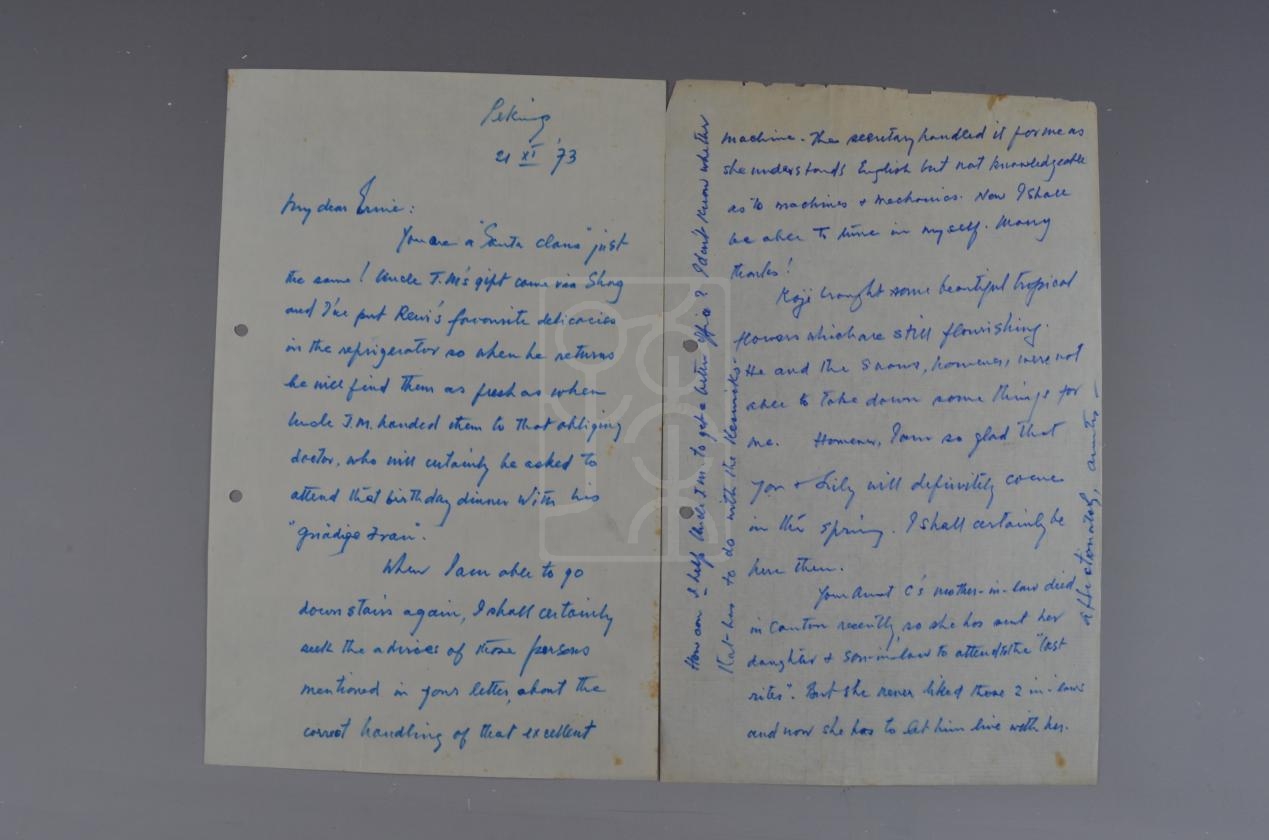 Peking
21 XI '73
My dear Ernie:
You are a "Santa claus" just
the same! Uncle T.M's gift came via Shag
and I've put Rewi's favourite delicacies
in the refrigerator so when he returns
he will find them as fresh as when
Uncle T.M. handed them to that obliging
doctor, who will certainly be asked to
attend that birthday dinner with his
"gnädige Frau".
When I am able to go
downstairs again, I shall certainly
seek the advices of those persons
mentioned in your letter, about the
correct handling of that excellent
machine. The secretary handled it for me as
she understands English but not knowledgeable
as to machines & mechanics. Now I shall
be able to tune in myself. Many
thanks!
Koji brought some beautiful tropical
flowers which are still flourishing.
He and the Snows, however, were not
able to take down some things for
me. However, I am so glad that
you & Lily will definitely come
in the spring. I shall certainly be
here then.
Your Aunt C's mother-in-law died
in Canton recently, so she has sent her
daughter & son-in-law to attend to the "last
rites". But she never liked those 2 in-laws
and now she has to let him live with her.
How can I help Uncle T.M. to get a better office? I don't know whether
that has to do with the Keswicks.
affectionately, aunty